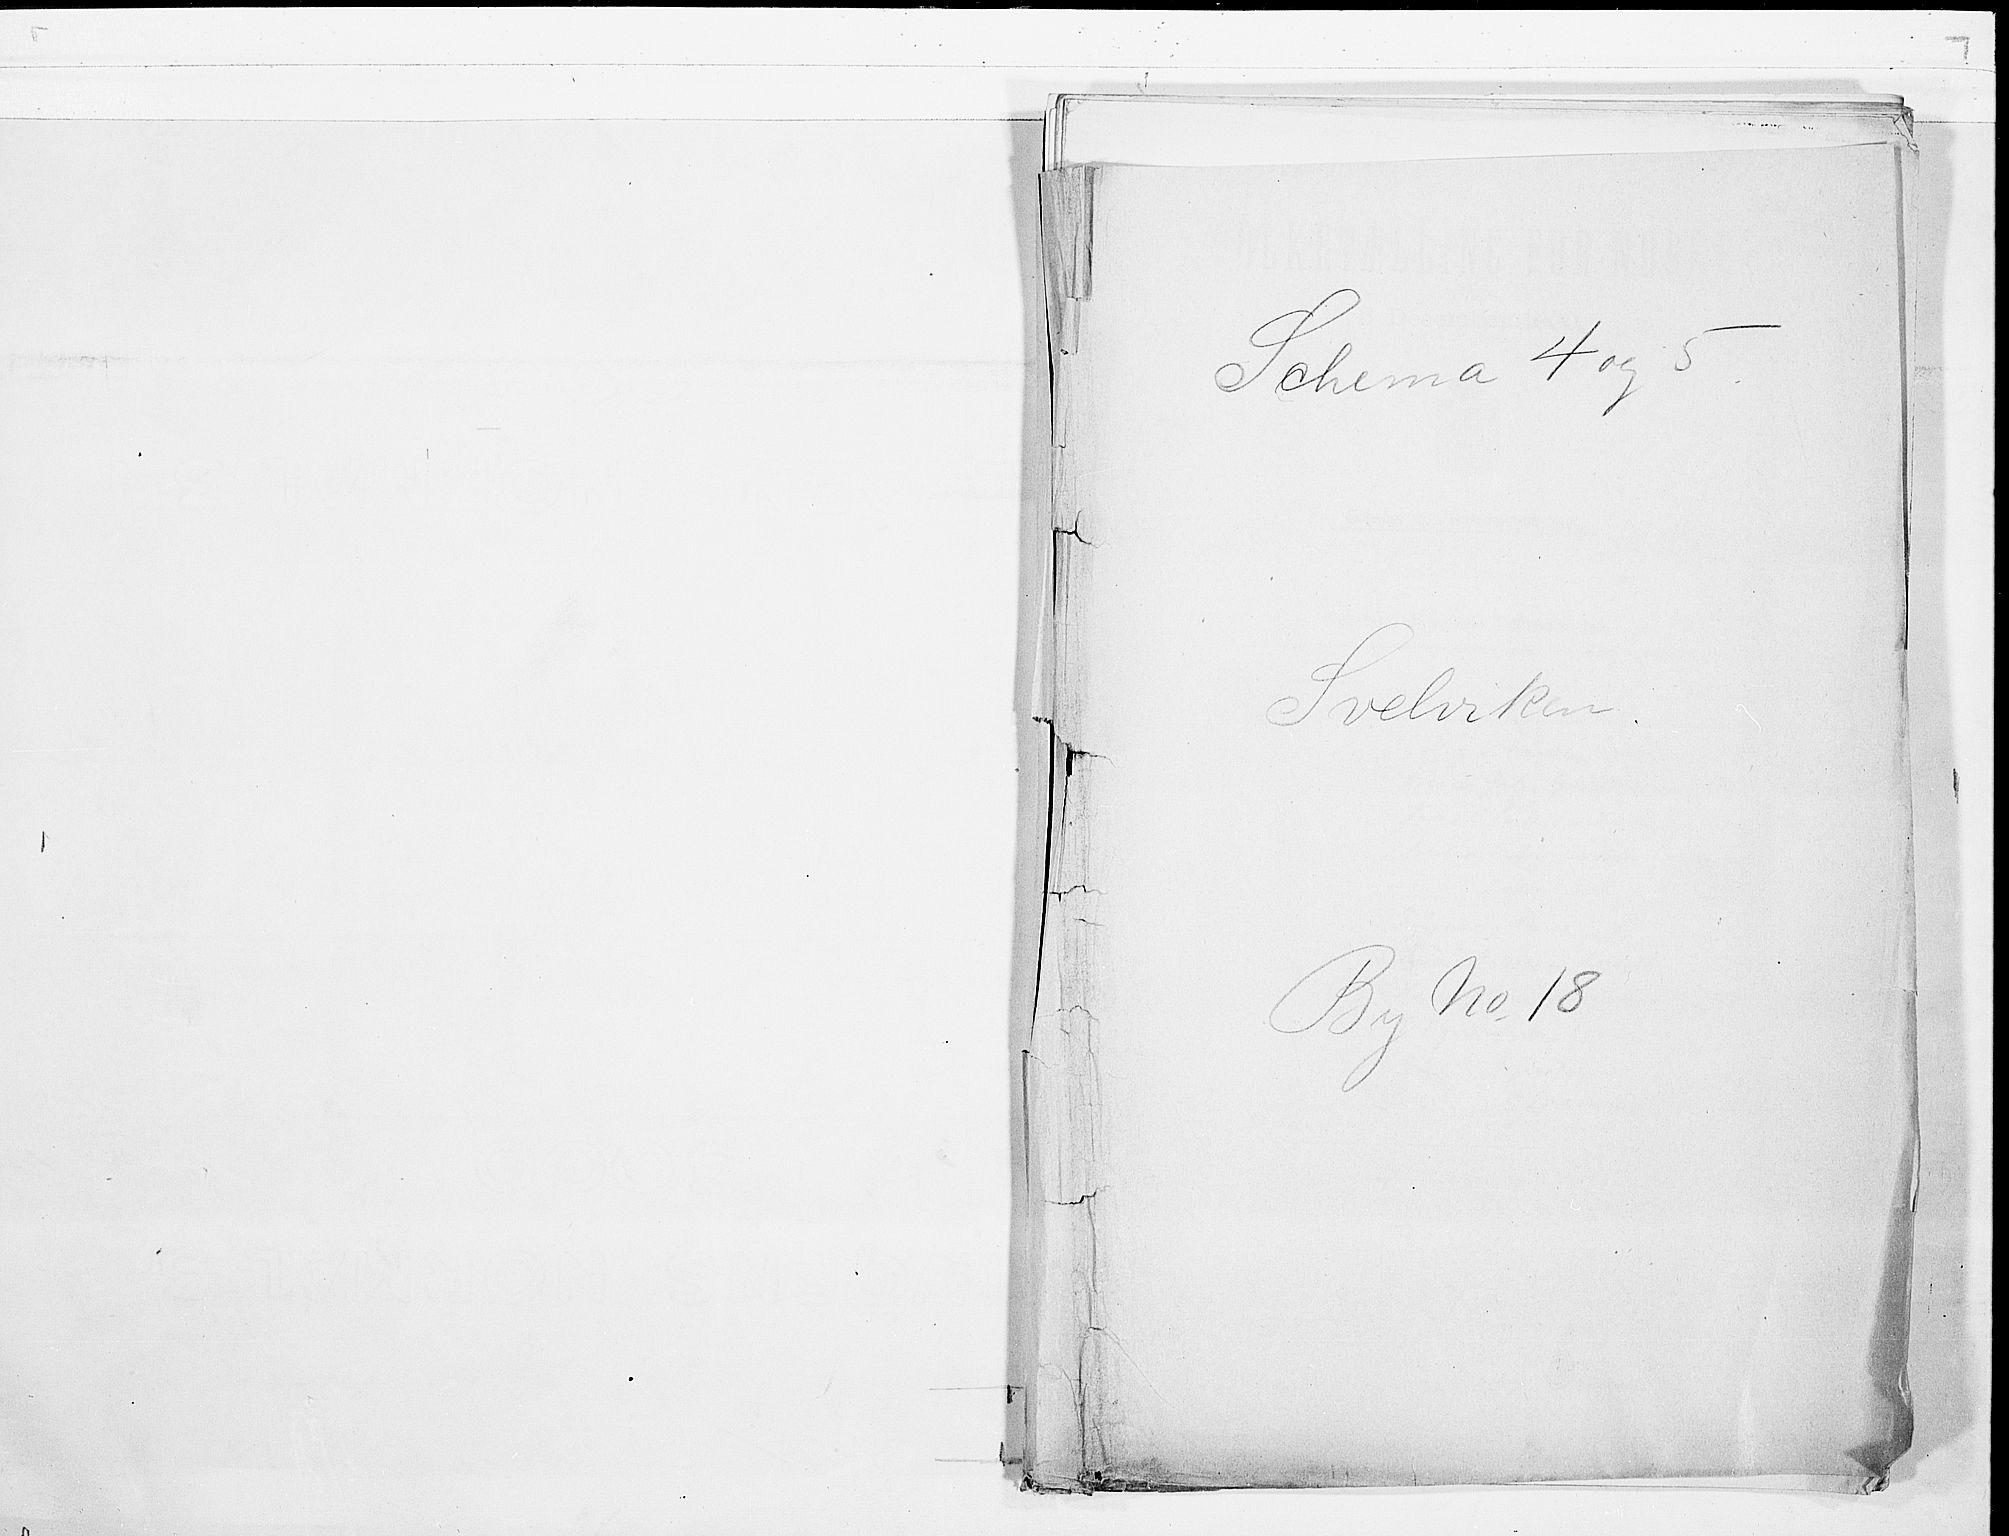 Schema 4 og 5.
Svelviken.
By No. 18